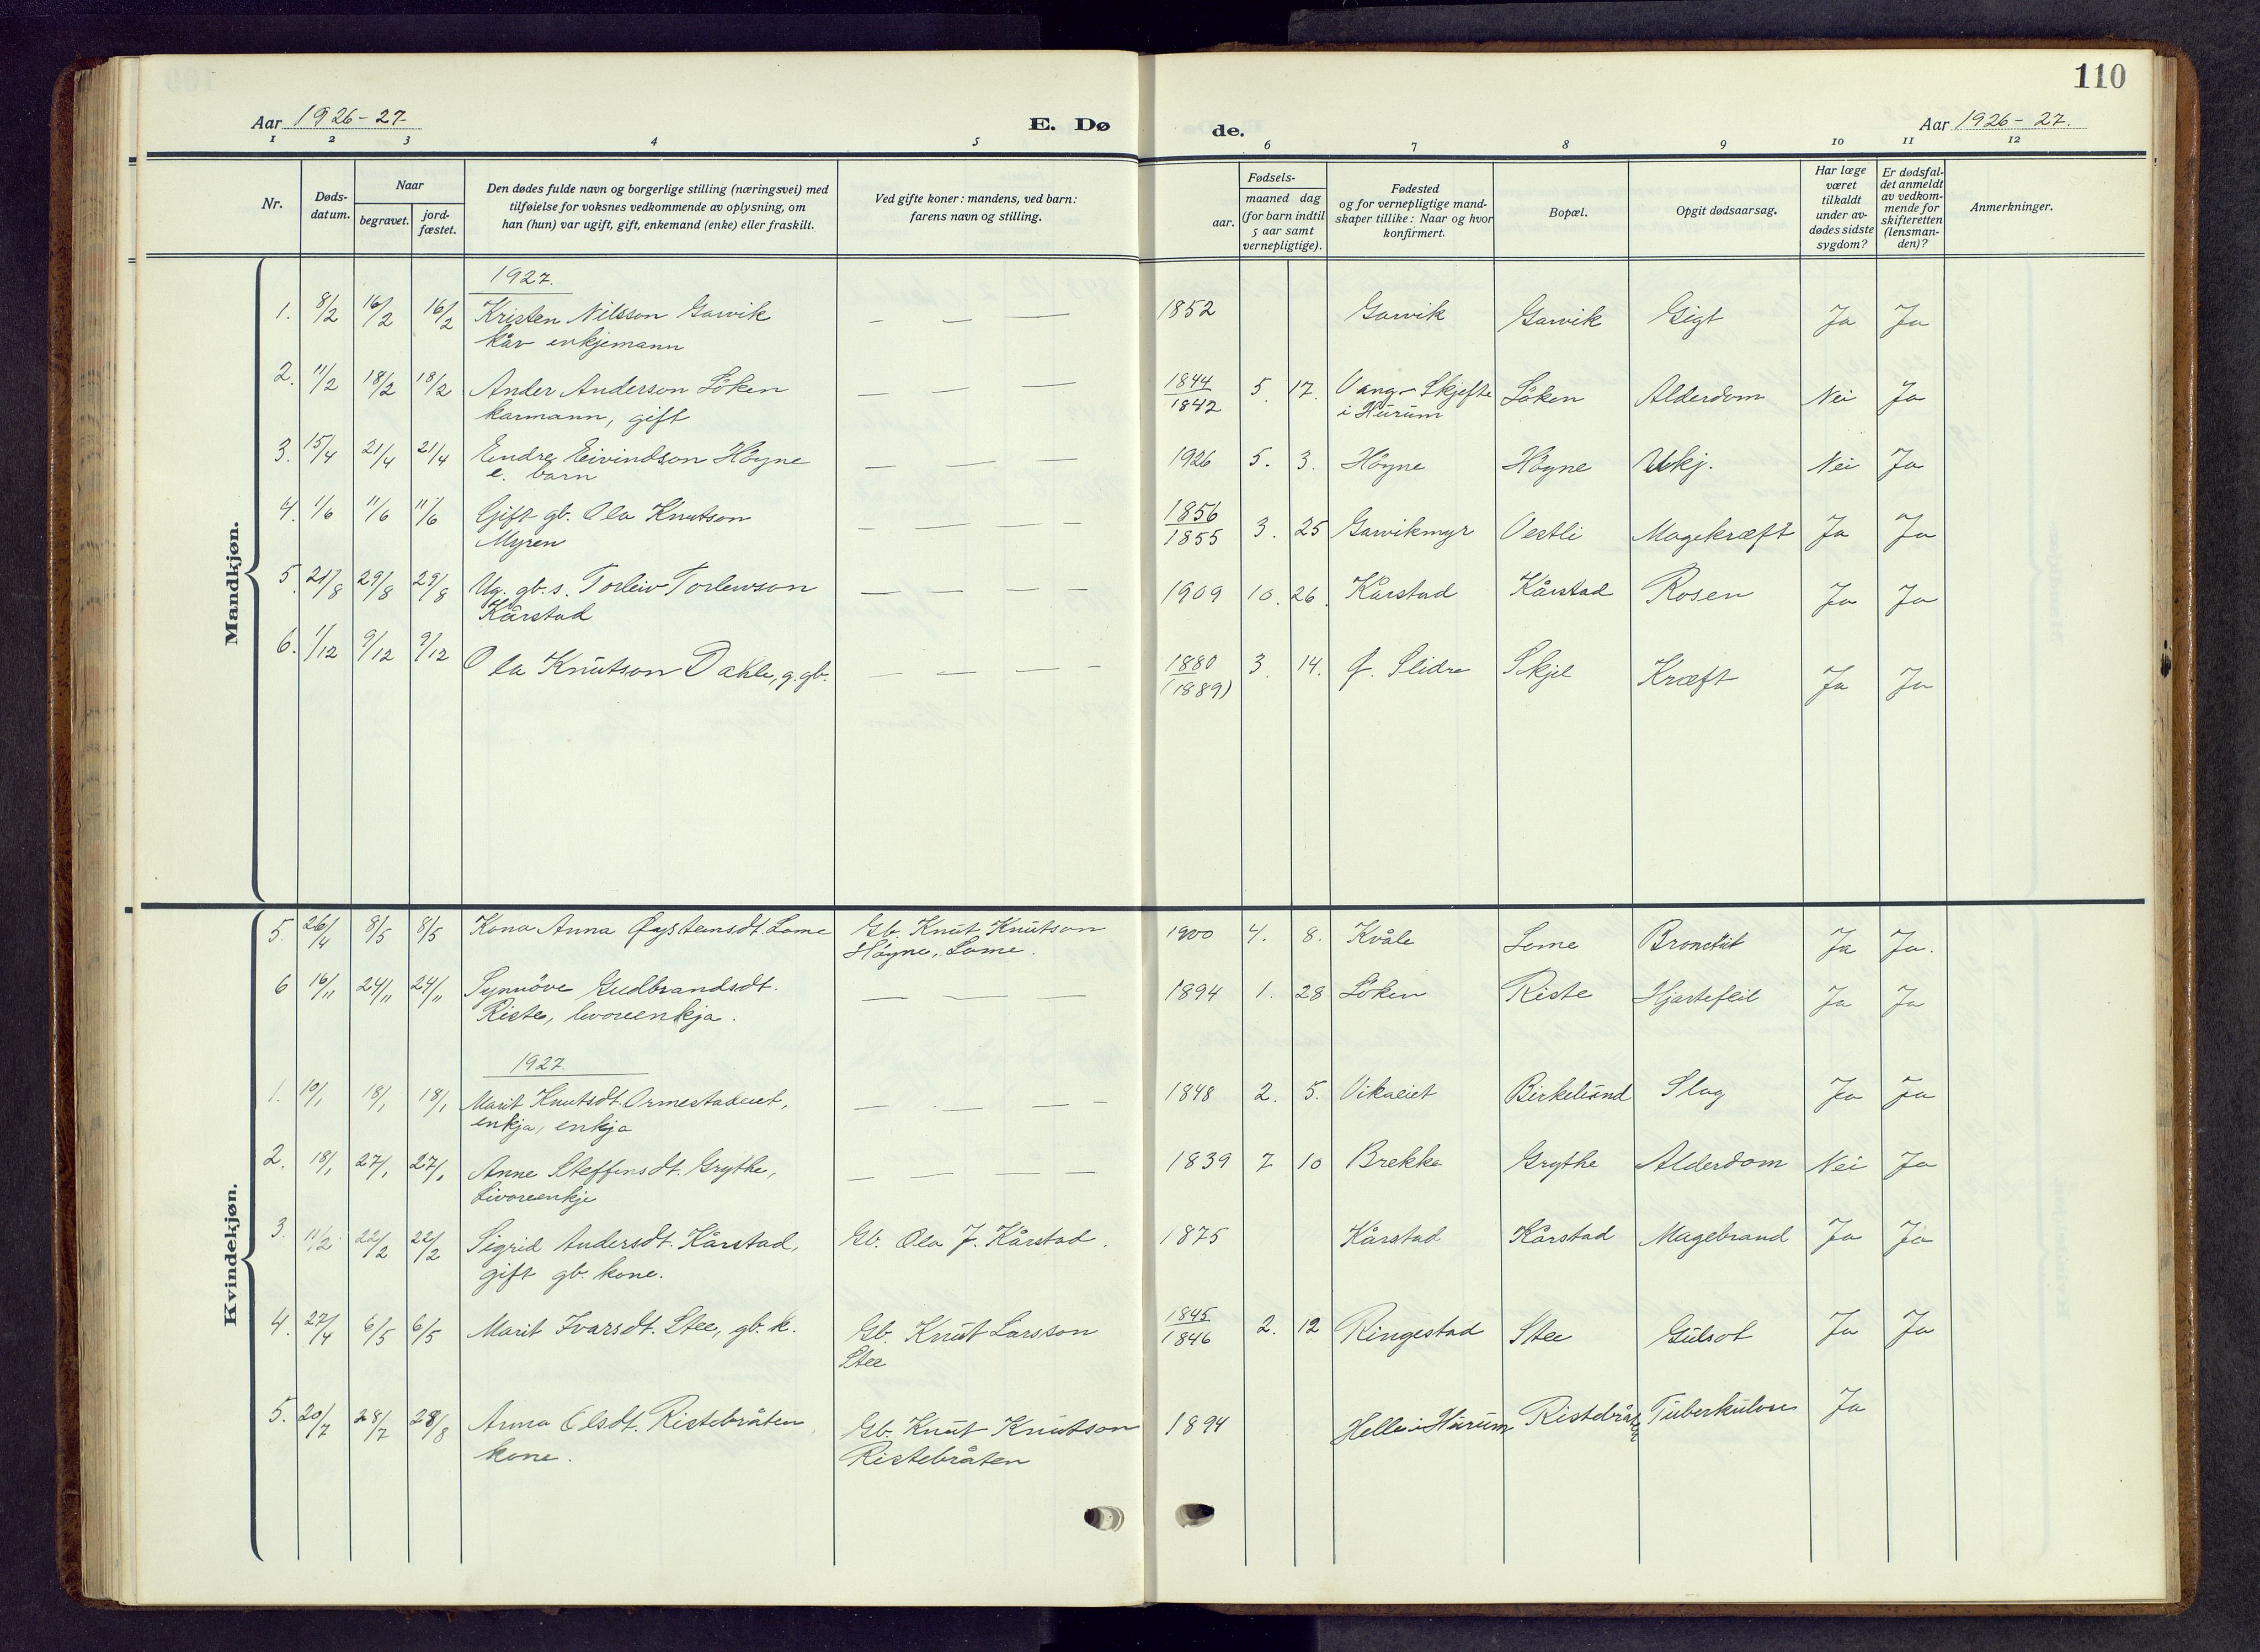 Aar 1926-27.
E. Dø
de.
110
Aar 1926-27.
1 2 3 4 5 6 7 8 9 10 11 12
Nr.
Døds-
datum.
Naar
begravet.
jord-
fæstet.
Den dødes fulde navn og borgerlige stilling (næringsvei) med
tilføielse for voksnes vedkommende av oplysning, om
han (hun) var ugift, gift, enkemand (enke) eller fraskilt.
Ved gifte koner: mandens, ved barn:
farens navn og stilling.
Fødsels-
aar.
maaned dag
(for barn indtil
5 aar samt
vernepligtige).
Fødested
og for vernepligtige mand-
skaper tillike: Naar og hvor
konfirmert.
Bopæl.
Opgit dødsaarsag.
Har læge
været
tilkaldt
under av-
dødes sidste
sygdom?
Er dødsfal-
det anmeldt
av vedkom-
mende for
skifteretten
(lensman-
den)?
Anmerkninger.
Mandkjøn.
1927.
1. 8/2 16/2 16/2 Kristen Nilsson Garvik — — — 1852 Garvik Garvik Gigt Ja Ja
kår enkjemann
2. 11/2 18/2 18/2 Ander Anderson Löken — — — 1844/1842 5. 17. Vang-Skjefte Löken Alderdom Nei Ja
karmann, gift i Hurum
3. 15/4 21/4 21/4 Endre Eivindson Högne — — — 1926 5. 3. Högne Högne Ukj. Nei Ja
e. barn
4. 1/6 11/6 11/6 Gift gb. Ola Knutson — — — 1856/1855 3. 25 Garvikmyr Vestli Magekræft Ja Ja
Myren
5. 21/8 29/8 29/8 Ug. gb. s. Torleiv Torlewson — — — — 1909 10. 26. Kårstad Kårstad Rosen Ja Ja
Kårstad
6. 1/12 9/12 9/12 Ola Knutson Dahle, g. gb. — — — — 1880/(1889) 3. 14. Ø. Slidre Skjel Kræft Ja Ja
Kvindekjøn.
5. 26/4 8/5 8/5 Kona Anna Øysteinsdt. Lome Gb. Knut Knutson 1900 4. 8. Kvåle Lome Bronckit Ja Ja.
Högne, Lome.
6 16/11 24/11 24/11 Synnöve Gudbrandsdt. — — — — 1894 1. 28 Löken Riste Hjartefeil Ja Ja
Riste, livoreenkja.
1927.
1. 10/1 18/1 18/1 Marit Knutsdt. Ormestadeiet, — — — — 1848 2. 5. Vikaeiet Birkelund Slag Ja Ja
enkja, enkja
2. 18/1 27/1 27/1 Anne Steffensdt. Grythe, — — — — 1839 7 10 Brekke Grythe Alderdom Nei Ja
Livoreenkje
3. 11/2 22/2 22/2 Sigrid Andersdt. Kårstad, Gb. Ola J. Kårstad. 1875 Kårstad Kårstad Magebrand Ja Ja
gift gb. kone.
4. 27/4 6/5 6/5 Marit Ivarsdt. Stee, gb. k. Gb. Knut Larsson 1845/1846 2. 12 Ringestad Stee Gulsot Ja Ja
Stee
5. 20/7 28/7 28/8 Anna Olsdt. Ristebråten Gb. Knut Knutson 1894 Helle i Hurum Ristebråten Tuberkulose Ja
kone. Ristebråten